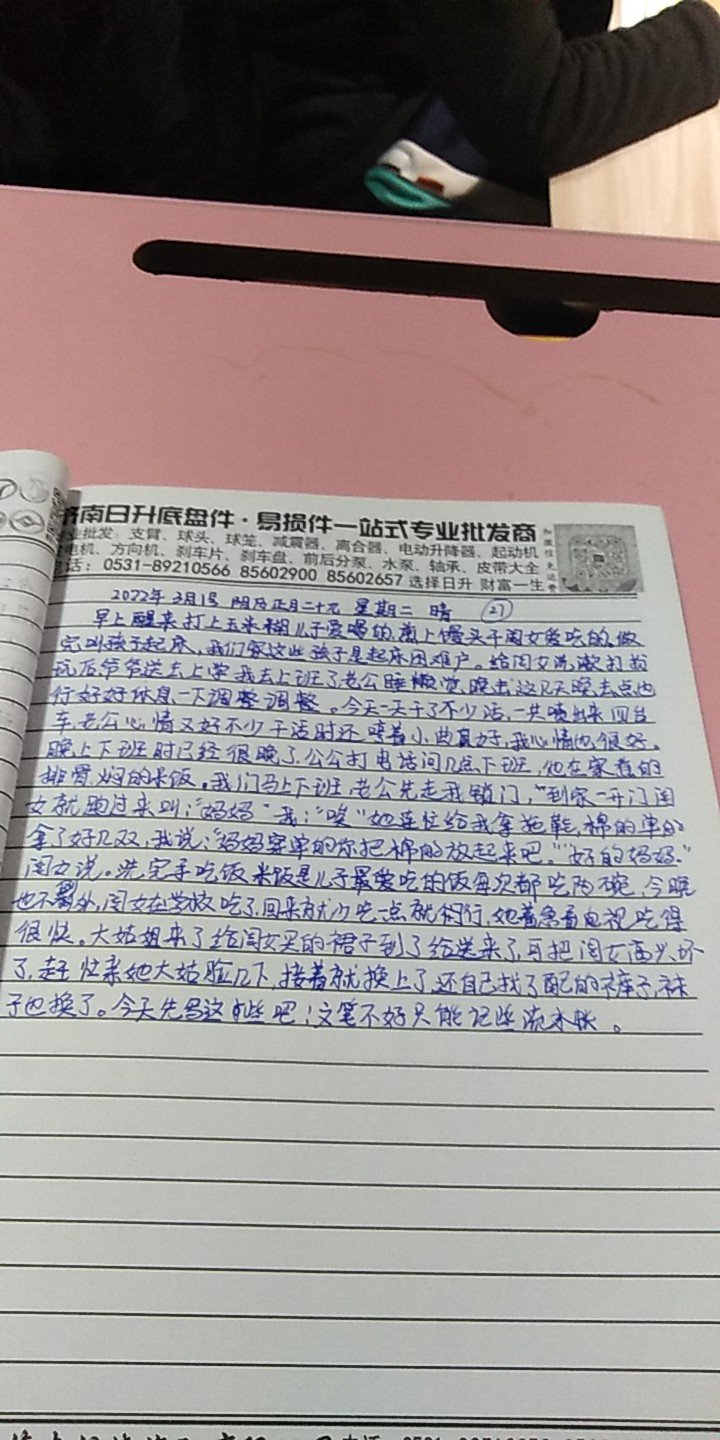 济南日升底盘件·易损件一站式专业批发商
业批发：支臂、球头、球笼、减震器、离合器、电动升降器、起动机
电机、方向机、刹车片、刹车盘、前后分泵、水泵、轴承、皮带大全
话：0531-89210566 85602900 85602657 选择日升 财富一生
2022年3月1号 阴历正月二十九 星期二 晴 ㉗
早上醒来打上玉米糊儿子爱喝的,蒸上馒头干闺女爱吃的,做
完叫孩子起床,我们家这些孩子是起床困难户。给闺女洗漱打扮
玩后爷爷送去上学我去上班了老公睡懒觉,晚出这几天晚去点也
行好好休息一下调整调整。今天一天干了不少活,一共喷出来四台
车,老公心情又好不少干活时还哼着小曲真好,我心情也很好。
晚上下班时已经很晚了,公公打电话问几点下班,他在家煮的
排骨焖的米饭。我们马上下班,老公先走我锁门,"到家一开门闺
女就跑过来叫:"妈妈"我:"唉"她连忙给我拿拖鞋,棉的单的
拿了好几双,我说:"妈妈穿单的你把棉的放起来吧。""好的妈妈."
闺女说。洗完手吃饭米饭是儿子最爱吃的饭每次都吃两碗,今晚
也不例外,闺女在学校吃了,回来就少吃一点就行行,她着急看电视吃得
很快。大姑姐来了给闺女买的裙子到了给送来了,可把闺女高兴坏
了,赶忙亲她大姑脸几下,接着就换上了,还自己找了配的裤子,袜
子也换了。今天先写这些吧!文笔不好只能记些流水账。